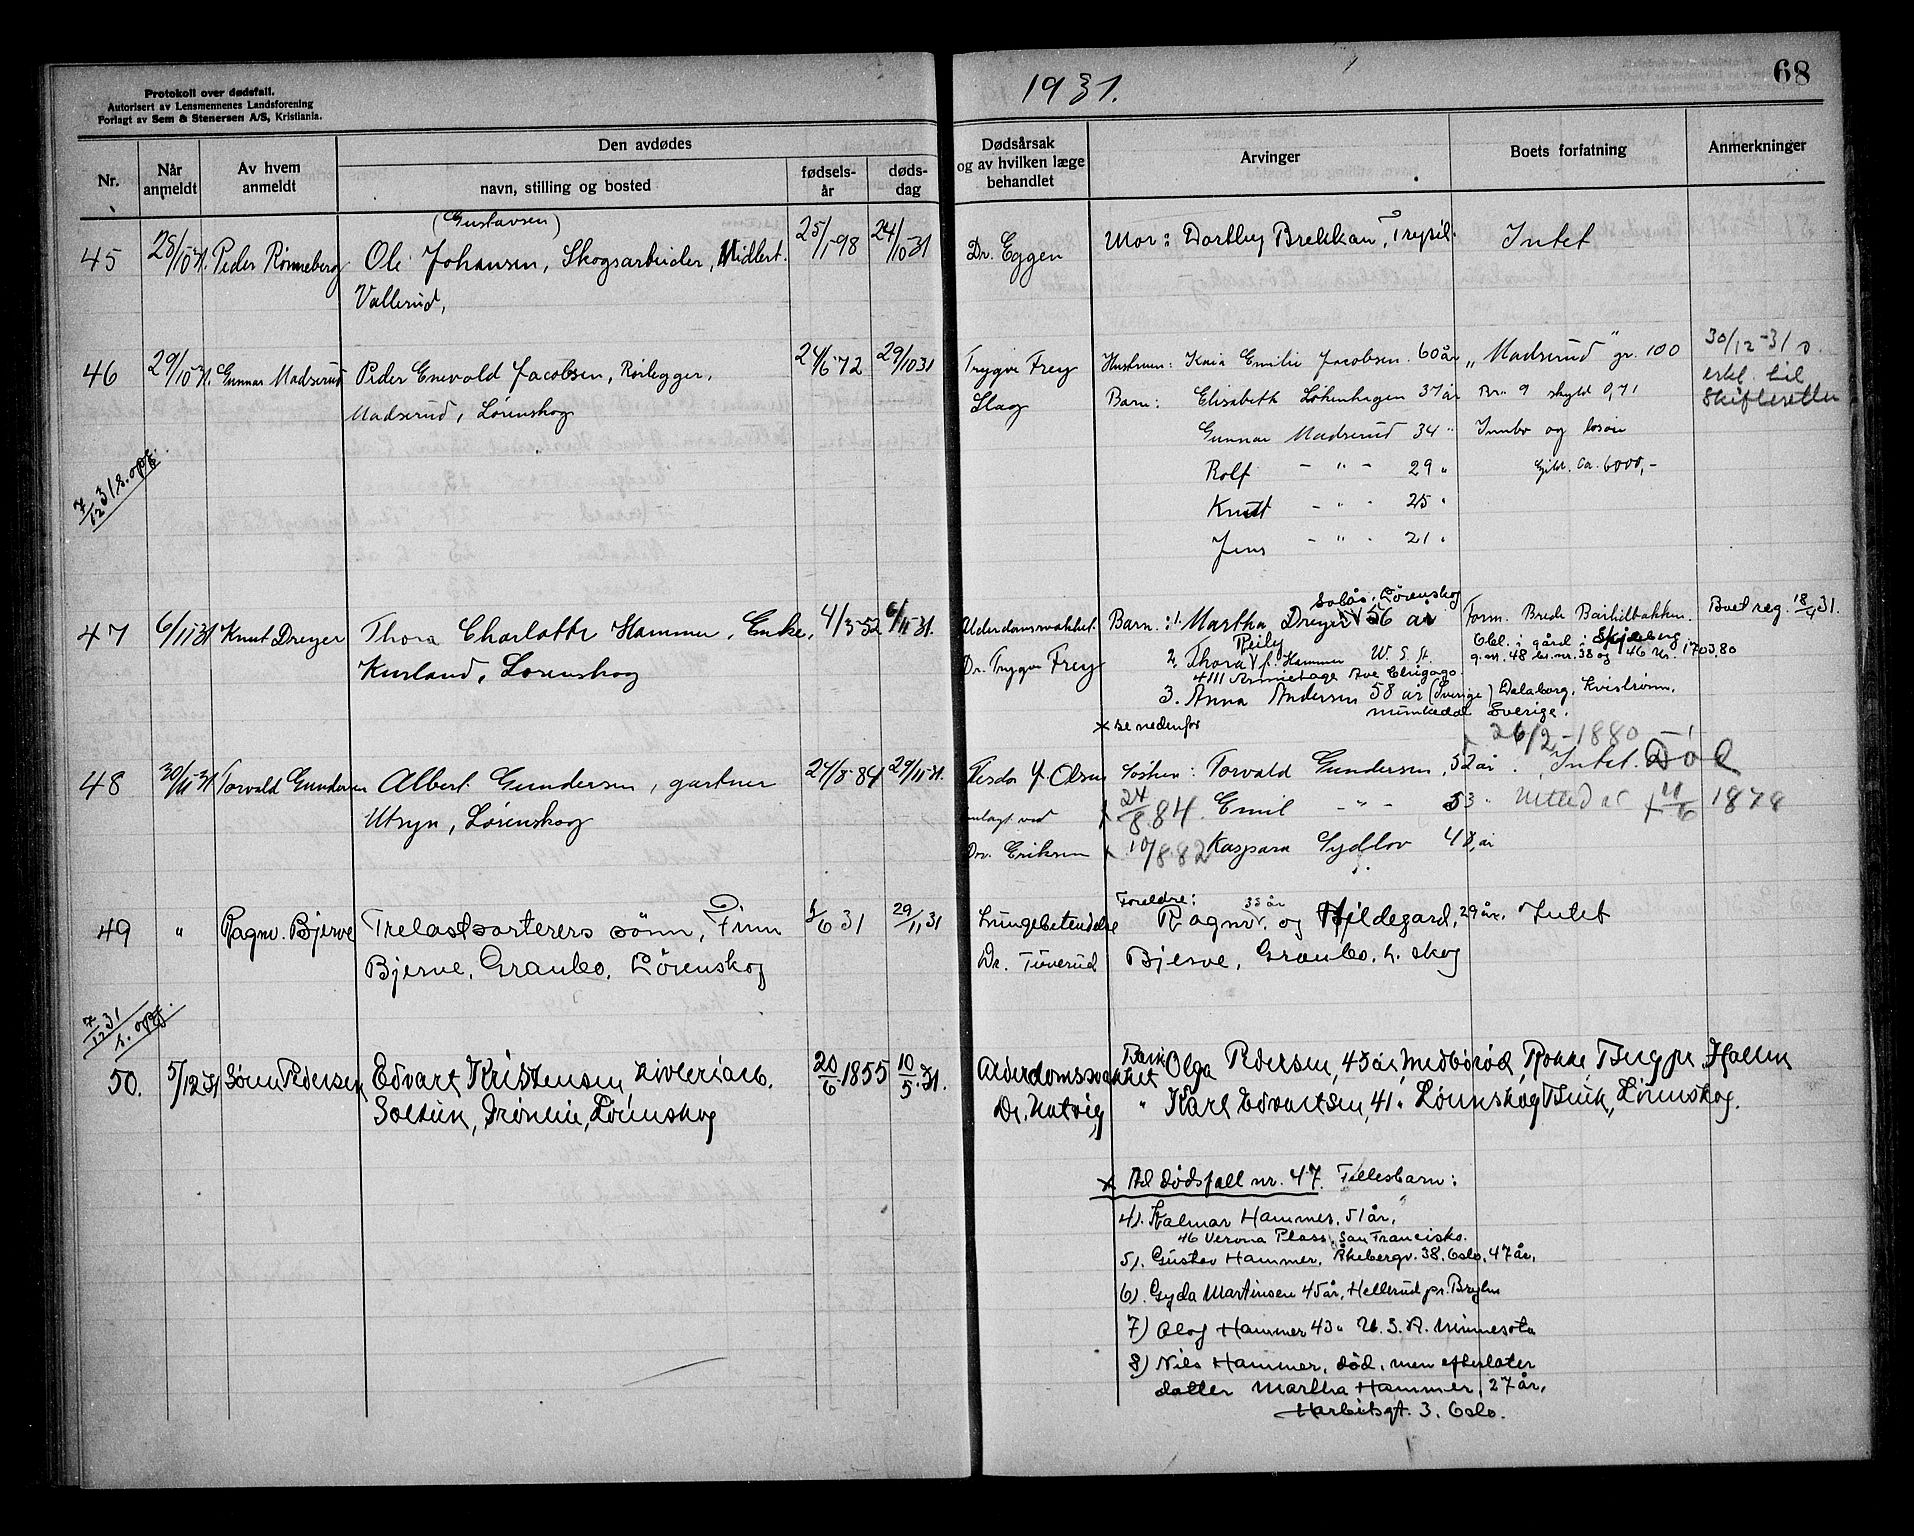 Protokoll over dødsfall.
Autorisert av Lensmennenes Landsforening
Forlagt av Sem & Stenersen A/S, Kristiania.
1931.
68
Nr.
Når anmeldt
Av hvem anmeldt
Den avdødes
navn, stilling og bosted
fødsels-år
døds-dag
Dødsårsak og av hvilken læge behandlet
Arvinger
Boets forfatning
Anmerkninger
(Gustavsen)
45 28/10 31. Peder Rønneberg Ole Johansen, Skogsarbeider, Midlert. 25/1-98 24/10 31 Dr. Eggen Mor: Trysil. Intet
Vallerud,
46 29/10 31. Gunnar Madserud Peder Enevold Jacobsen, Rørlegger, 24/6 72 29/10 31 Trygve Frey Hustrum: Kaia Emilie Jacobsen 60 år „Madserud" gr. 100 30/12-31
Madserud, Lørenskog Slag Barn: Elisabeth Løkenhagen 37 år Br. 9 skyld 0,71 erkl. til
Gunnar Madserud 34 " Innbo og løsøre Skifteretten
Rolf - " - 29 " ca. 6000,-
7/12 31 s. opg. Knut - " - 25 "
Jens - " - 21 "
Solås, Lørenskog
47 6/11 31 Knut Dreyer Thora Charlotte Hammer, Enke, 4/3-52 6/11 31. Alderdomssvakhet. Barn: 1. Martha Dreyer 56 år Form. Brede Boet reg. 18/4 31.
Kurland, Lørenskog Dr. Trygve Frey 2. Thora f. Hammer Obl. i gård i Skjeberg
g.nr. 48 br.nr. 38 og 46 kr. 1703,80
4111 Armietage Ave Chigago.
3. Anna Andersen 58 år (Sverige) Dalaborg, Kviström,
Munkedal Sverige.
x se nedenfor
26/2-1880
48 30/11 31 Torvald Gundersen Albert Gundersen, gartner 24/8-84 29/11 31. Olsen Søsken: Torvald Gundersen, 52 år. Intet. Død
Utsyn, Lørenskog innlagt ved 24/8 84. Emil - " - 53 " 11/6 1878
Dr. Eriksen 10/8.82 Kaspara Sydlov 48 år
49 " Ragnv. Bjerve Trelastsorterers sønn, Finn 6 31 29/11 31 Lungebetendelse Foreldre: Ragnv. 35 år og Hildegard, 29 år. Intet
Bjerve, Granbo, Lørenskog Dr. Tuverud Bjerve, Granbo, L. skog
7/12 31 s. opg.
50. 5/12 31 Søren Pedersen Edvart Kristensen 20/6 1855 10/5 31. Alderdomssvakhet Barn Olga Pedersen, 45 år,
Lørenskog Dr. Hatvig " Karl Edvartsen, 41 " Lørenskog Bruk, Lørenskog.
x Ad dødsfall nr. 47. Fellesbarn:
4). Halmar Hammer, 51 år,
46 Verona Plass, San Francisko.
5). Gustav Hammer, Åkebergv. 38. Oslo, 47 år.
6). Gyda Martinsen 45 år, Hellerud pr. Bryhn
7) Olag Hammer 43 " U. S. A. Minnesota
8) Nils Hammer, død, men efterlater
datter Martha Hammer, 27 år,
Harbitsgt. 3. Oslo.